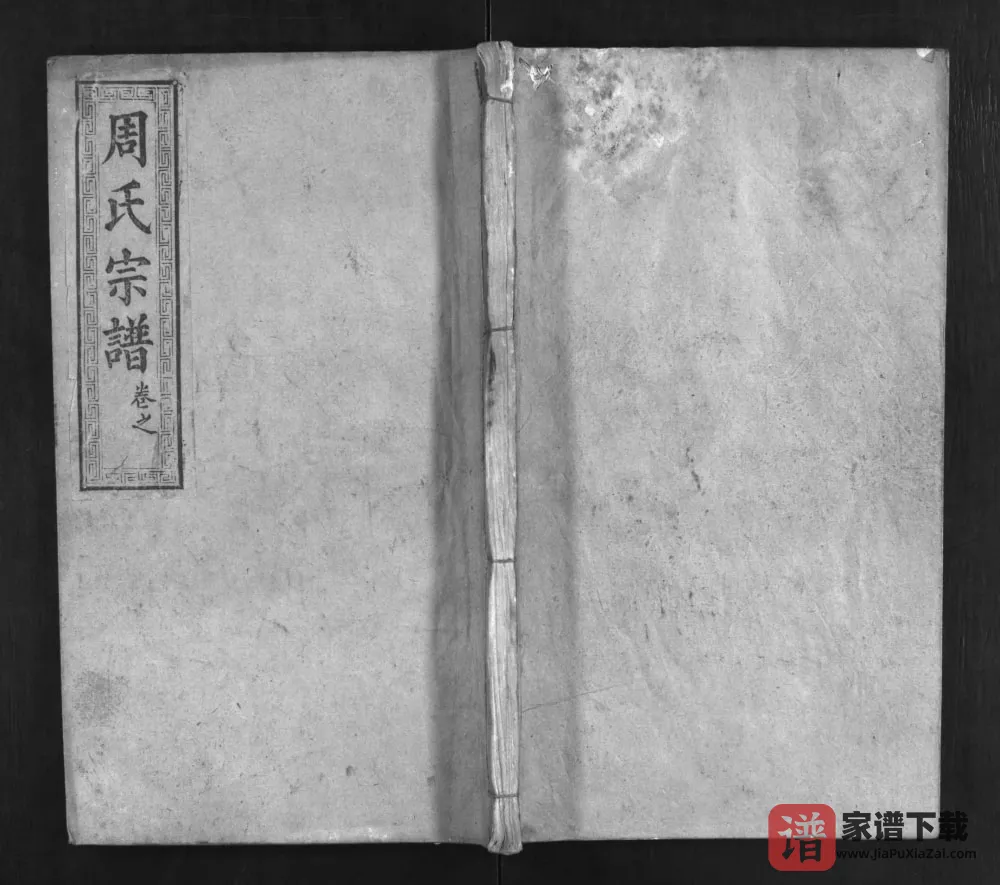 周氏宗譜
卷之
谱
家谱下载
www.JiaPuXiaZai.com